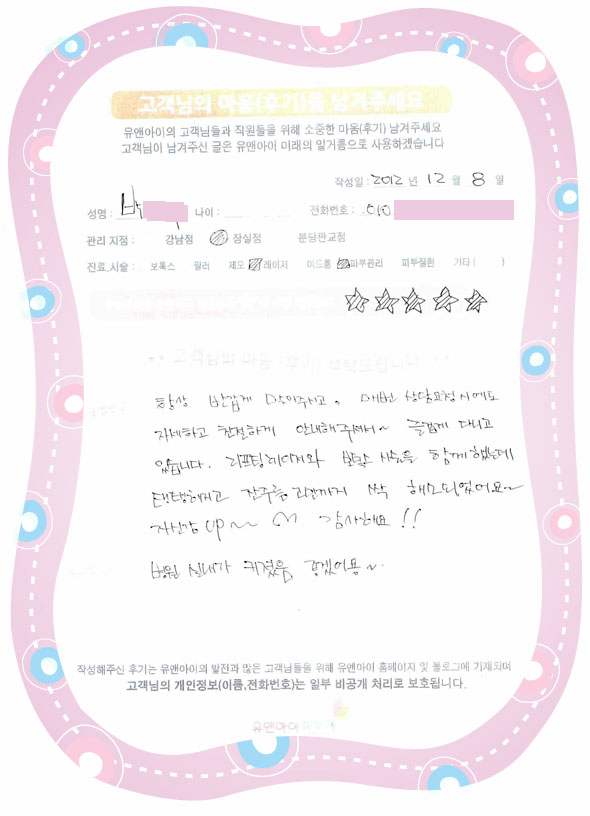 고객님의 마음(후기)을 남겨주세요
유앤아이의 고객님들과 직원들을 위해 소중한 마음(후기) 남겨주세요
고객님이 남겨주신 글은 유앤아이 미래의 밑거름으로 사용하겠습니다
작성일 : 2012 년 12 월 8 일
성명 : 박 나이 : 전화번호 : 010
관리 지점 : 강남점 잠실점 분당판교점
진료.시술 : 보톡스 필러 제모 레이저 여드름 피부관리 피부질환 기타 ( )
☆☆☆☆☆
고객님의 마음 (후기) 부탁드립니다
항상 반갑게 맞아주시고, 매번 상담요청시에도
자세하고 친절하게 안내해주셔서~ 즐겁게 다니고
있습니다. 리프팅레이저와 보톡 시술을 함께 했는데
탱탱해지고 잔주름 라인까지 싹 해소되었어요~
자신감 up~~ 감사해요!!
병원 실내가 커졌음 좋겠어용~
작성해주신 후기는 유앤아이의 발전과 많은 고객님들을 위해 유앤아이 홈페이지 및 블로그에 기재되며
고객님의 개인정보(이름,전화번호)는 일부 비공개 처리로 보호됩니다.
유앤아이피부과